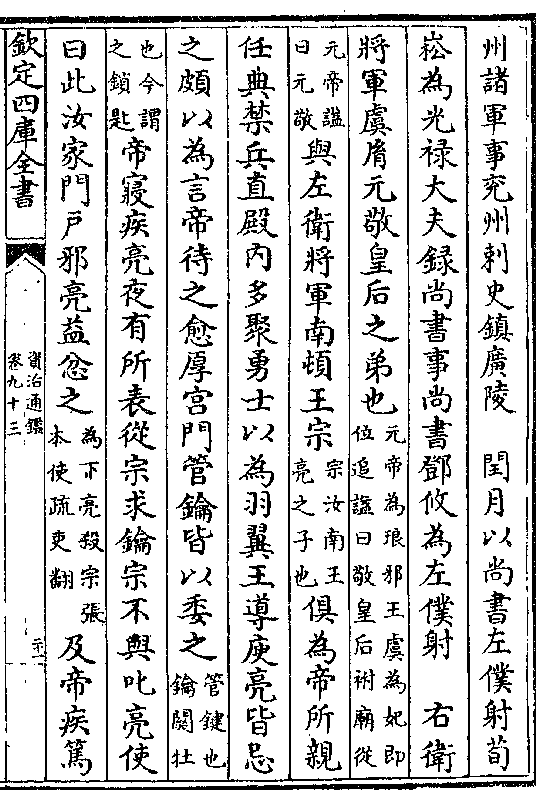 州諸軍事兖州刺史鎮廣陵　閏月以尚書左僕射荀
崧為光祿大夫録尚書事尚書鄧攸為左僕射　右衛
將軍虞㣧元敬皇后之弟也元帝為琅邪王虞為妃即位追諡曰敬皇后祔廟從
元帝諡曰元敬與左衛將軍南頓王宗宗汝南王亮之子也俱為帝所親
任典禁兵直殿内多聚勇士以為羽翼王導庾亮皆忌
之頗以為言帝待之愈厚宫門管鑰皆以委之管鍵也鑰關牡
也今謂之鎖匙帝寢疾亮夜有所表從宗求鑰宗不與叱亮使
曰此汝家門戸邪亮益忿之為下亮殺宗張本使疏吏翻及帝疾篤
欽定四庫全書
資治通鑑
卷九十三